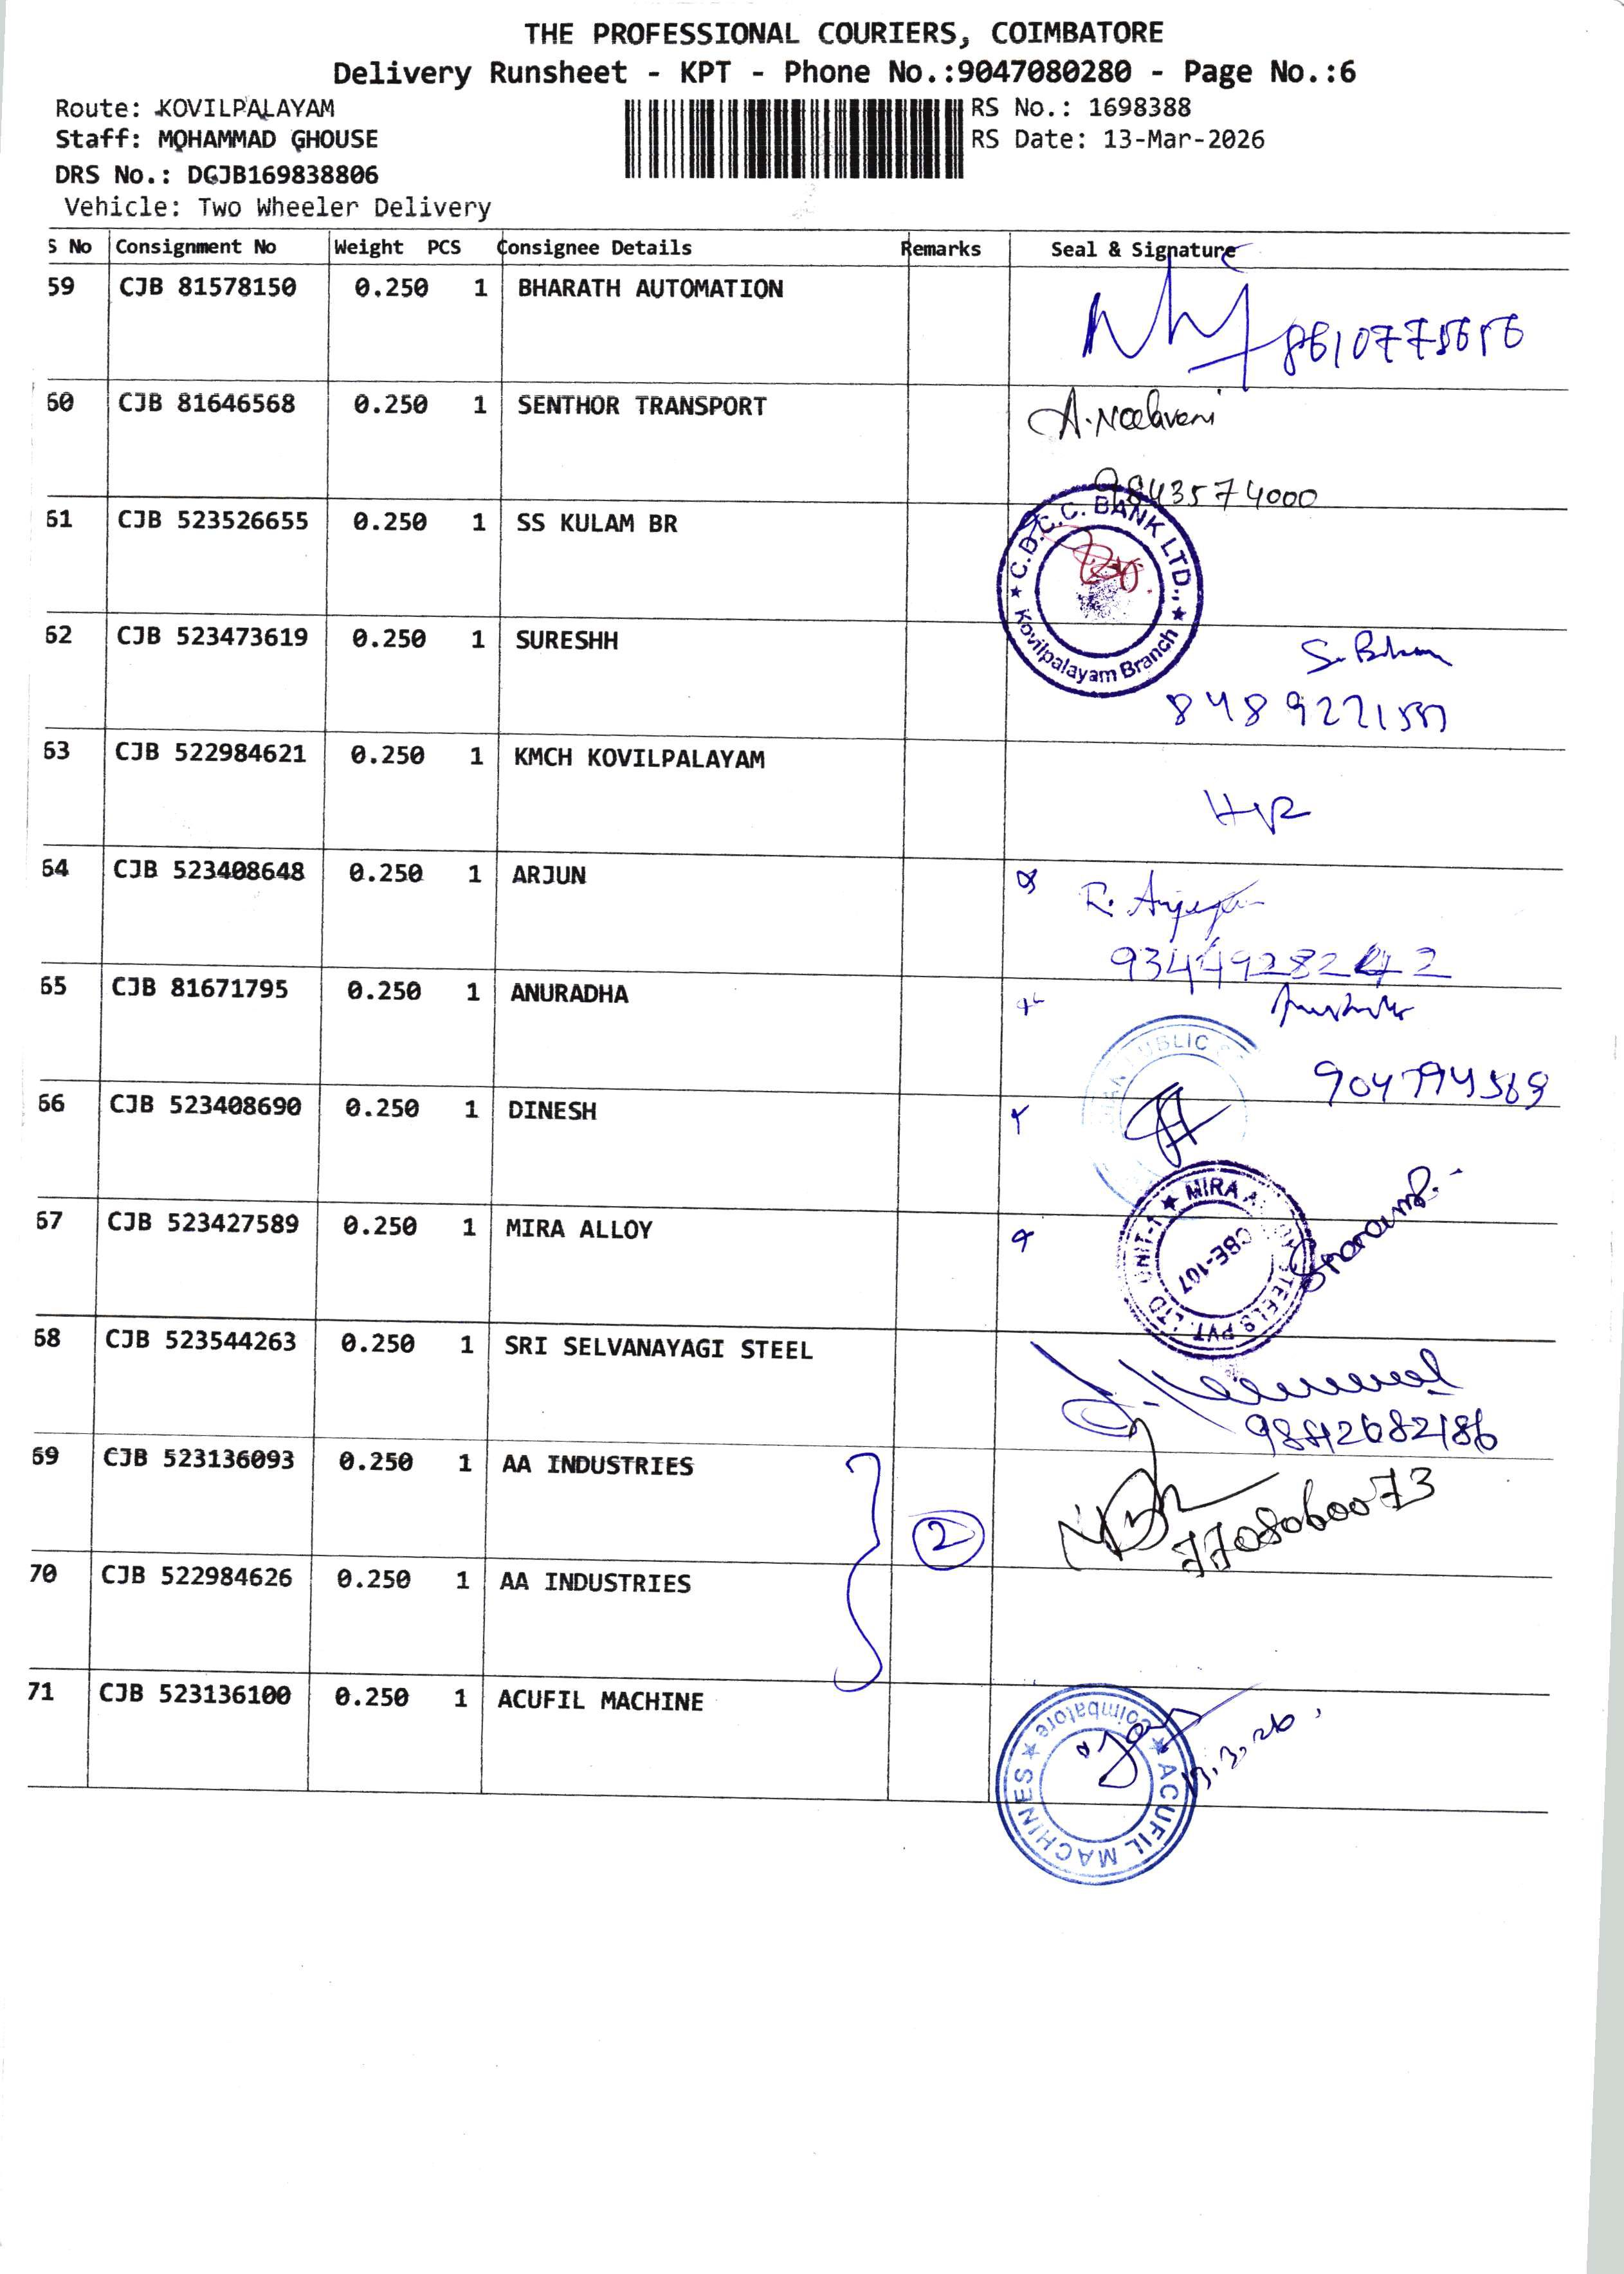 THE PROFESSIONAL COURIERS, COIMBATORE
Delivery Runsheet - KPT - Phone No.:9047080280 - Page No.:6
Route: KOVILPALAYAM
RS No.: 1698388
Staff: MOHAMMAD GHOUSE
RS Date: 13-Mar-2026
DRS No.: DGJB169838806
Vehicle: Two Wheeler Delivery
S No Consignment No Weight PCS Consignee Details Remarks Seal & Signature
59 CJB 81578150 0.250 1 BHARATH AUTOMATION
60 CJB 81646568 0.250 1 SENTHOR TRANSPORT
A. Neelaveni
9843574000
61 CJB 523526655 0.250 1 SS KULAM BR
C.D.C.C. BANK LTD.,
Kovilpalayam Branch
62 CJB 523473619 0.250 1 SURESHH
63 CJB 522984621 0.250 1 KMCH KOVILPALAYAM
HR
64 CJB 523408648 0.250 1 ARJUN
65 CJB 81671795 0.250 1 ANURADHA
PUBLIC
66 CJB 523408690 0.250 1 DINESH
67 CJB 523427589 0.250 1 MIRA ALLOY
MIRA ALLOY STEELS PVT. LTD. UNIT-1
CBE-107
68 CJB 523544263 0.250 1 SRI SELVANAYAGI STEEL
9842682186
69 CJB 523136093 0.250 1 AA INDUSTRIES
2
7708060073
70 CJB 522984626 0.250 1 AA INDUSTRIES
71 CJB 523136100 0.250 1 ACUFIL MACHINE
ACUFIL MACHINES
Coimbatore
13.3.26.